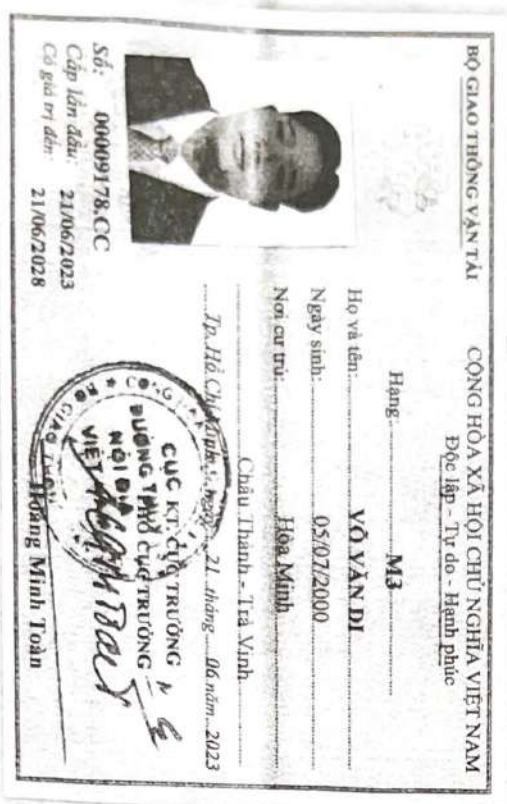 BỘ GIAO THÔNG VẬN TẢI
CỘNG HÒA XÃ HỘI CHỦ NGHĨA VIỆT NAM
Độc lập - Tự do - Hạnh phúc
Hạng: M3
Họ và tên: VÕ VĂN DI
Ngày sinh: 05/07/2000
Nơi cư trú: Hòa Minh
Châu Thành - Trà Vinh
Tp.Hồ Chí Minh, ngày 21 tháng 06 năm 2023
KT. CỤC TRƯỞNG
PHÓ CỤC TRƯỞNG
CỤC
ĐƯỜNG THỦY
NỘI ĐỊA
VIỆT
Hoàng Minh Toàn
Số: 00009178.CC
Cấp lần đầu: 21/06/2023
Có giá trị đến: 21/06/2028